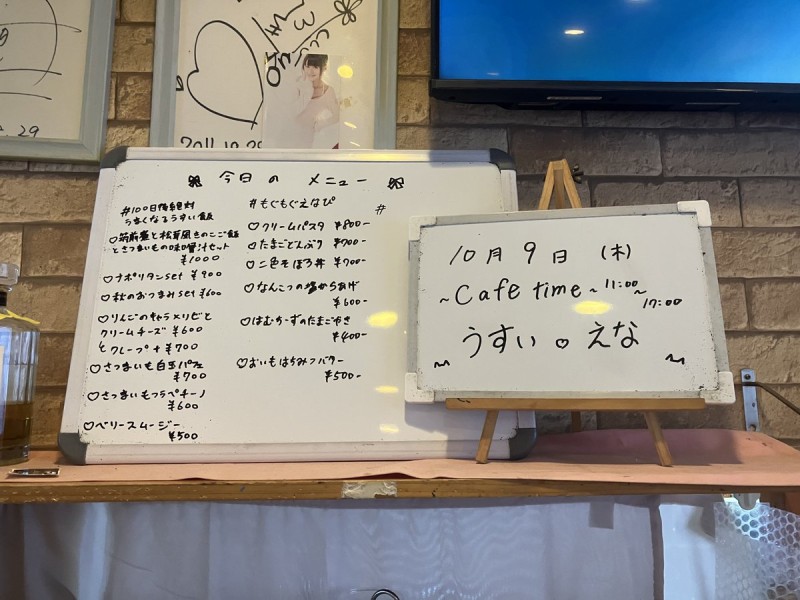 2011.10.29
今日の メニュー
#100日後絶対
うまくなるうすい飯
♡筑前煮と松茸風きのこご飯
とさつまいもの味噌汁セット
¥1000
♡ナポリタンset ¥900
♡秋のおつまみset ¥600
♡りんごのキャラメリゼと
クリームチーズ ¥600
とクレープ+¥700
♡さつまいも白玉パフェ
¥700
♡さつまいもフラペチーノ
¥600
♡ベリースムージー
¥500
#もぐもぐえなぴ
#
♡クリームパスタ ¥800-
♡たまごどんぶり ¥700-
♡二色そぼろ丼 ¥700-
♡なんこつの唐からあげ
¥600-
♡はむちーずのたまごやき
¥400-
♡おいもはちみつバター
¥500-
10月9日(木)
~Cafe time~11:00~
17:00
うすい♡えな